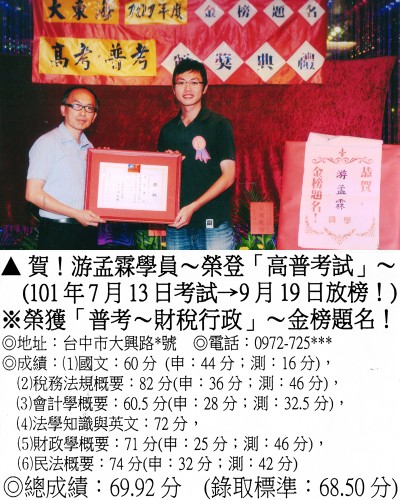 大東海 2012年度 金榜題名
高考·普考 頒獎典禮
恭賀
游孟霖
同學
金榜題名!
▲賀!游孟霖學員~榮登「高普考試」~
(101年7月13日考試→9月19日放榜!)
※榮獲「普考~財稅行政」~金榜題名!
◎地址:台中市大興路*號 ◎電話:0972-725***
◎成績:⑴國文:60分 (申:44分;測:16分),
⑵稅務法規概要:82分(申:36分;測:46分),
⑶會計學概要:60.5分(申:28分;測:32.5分),
⑷法學知識與英文:72分,
⑸財政學概要:71分(申:25分;測:46分),
⑹民法概要:74分(申:32分;測:42分)
◎總成績:69.92分 (錄取標準:68.50分)